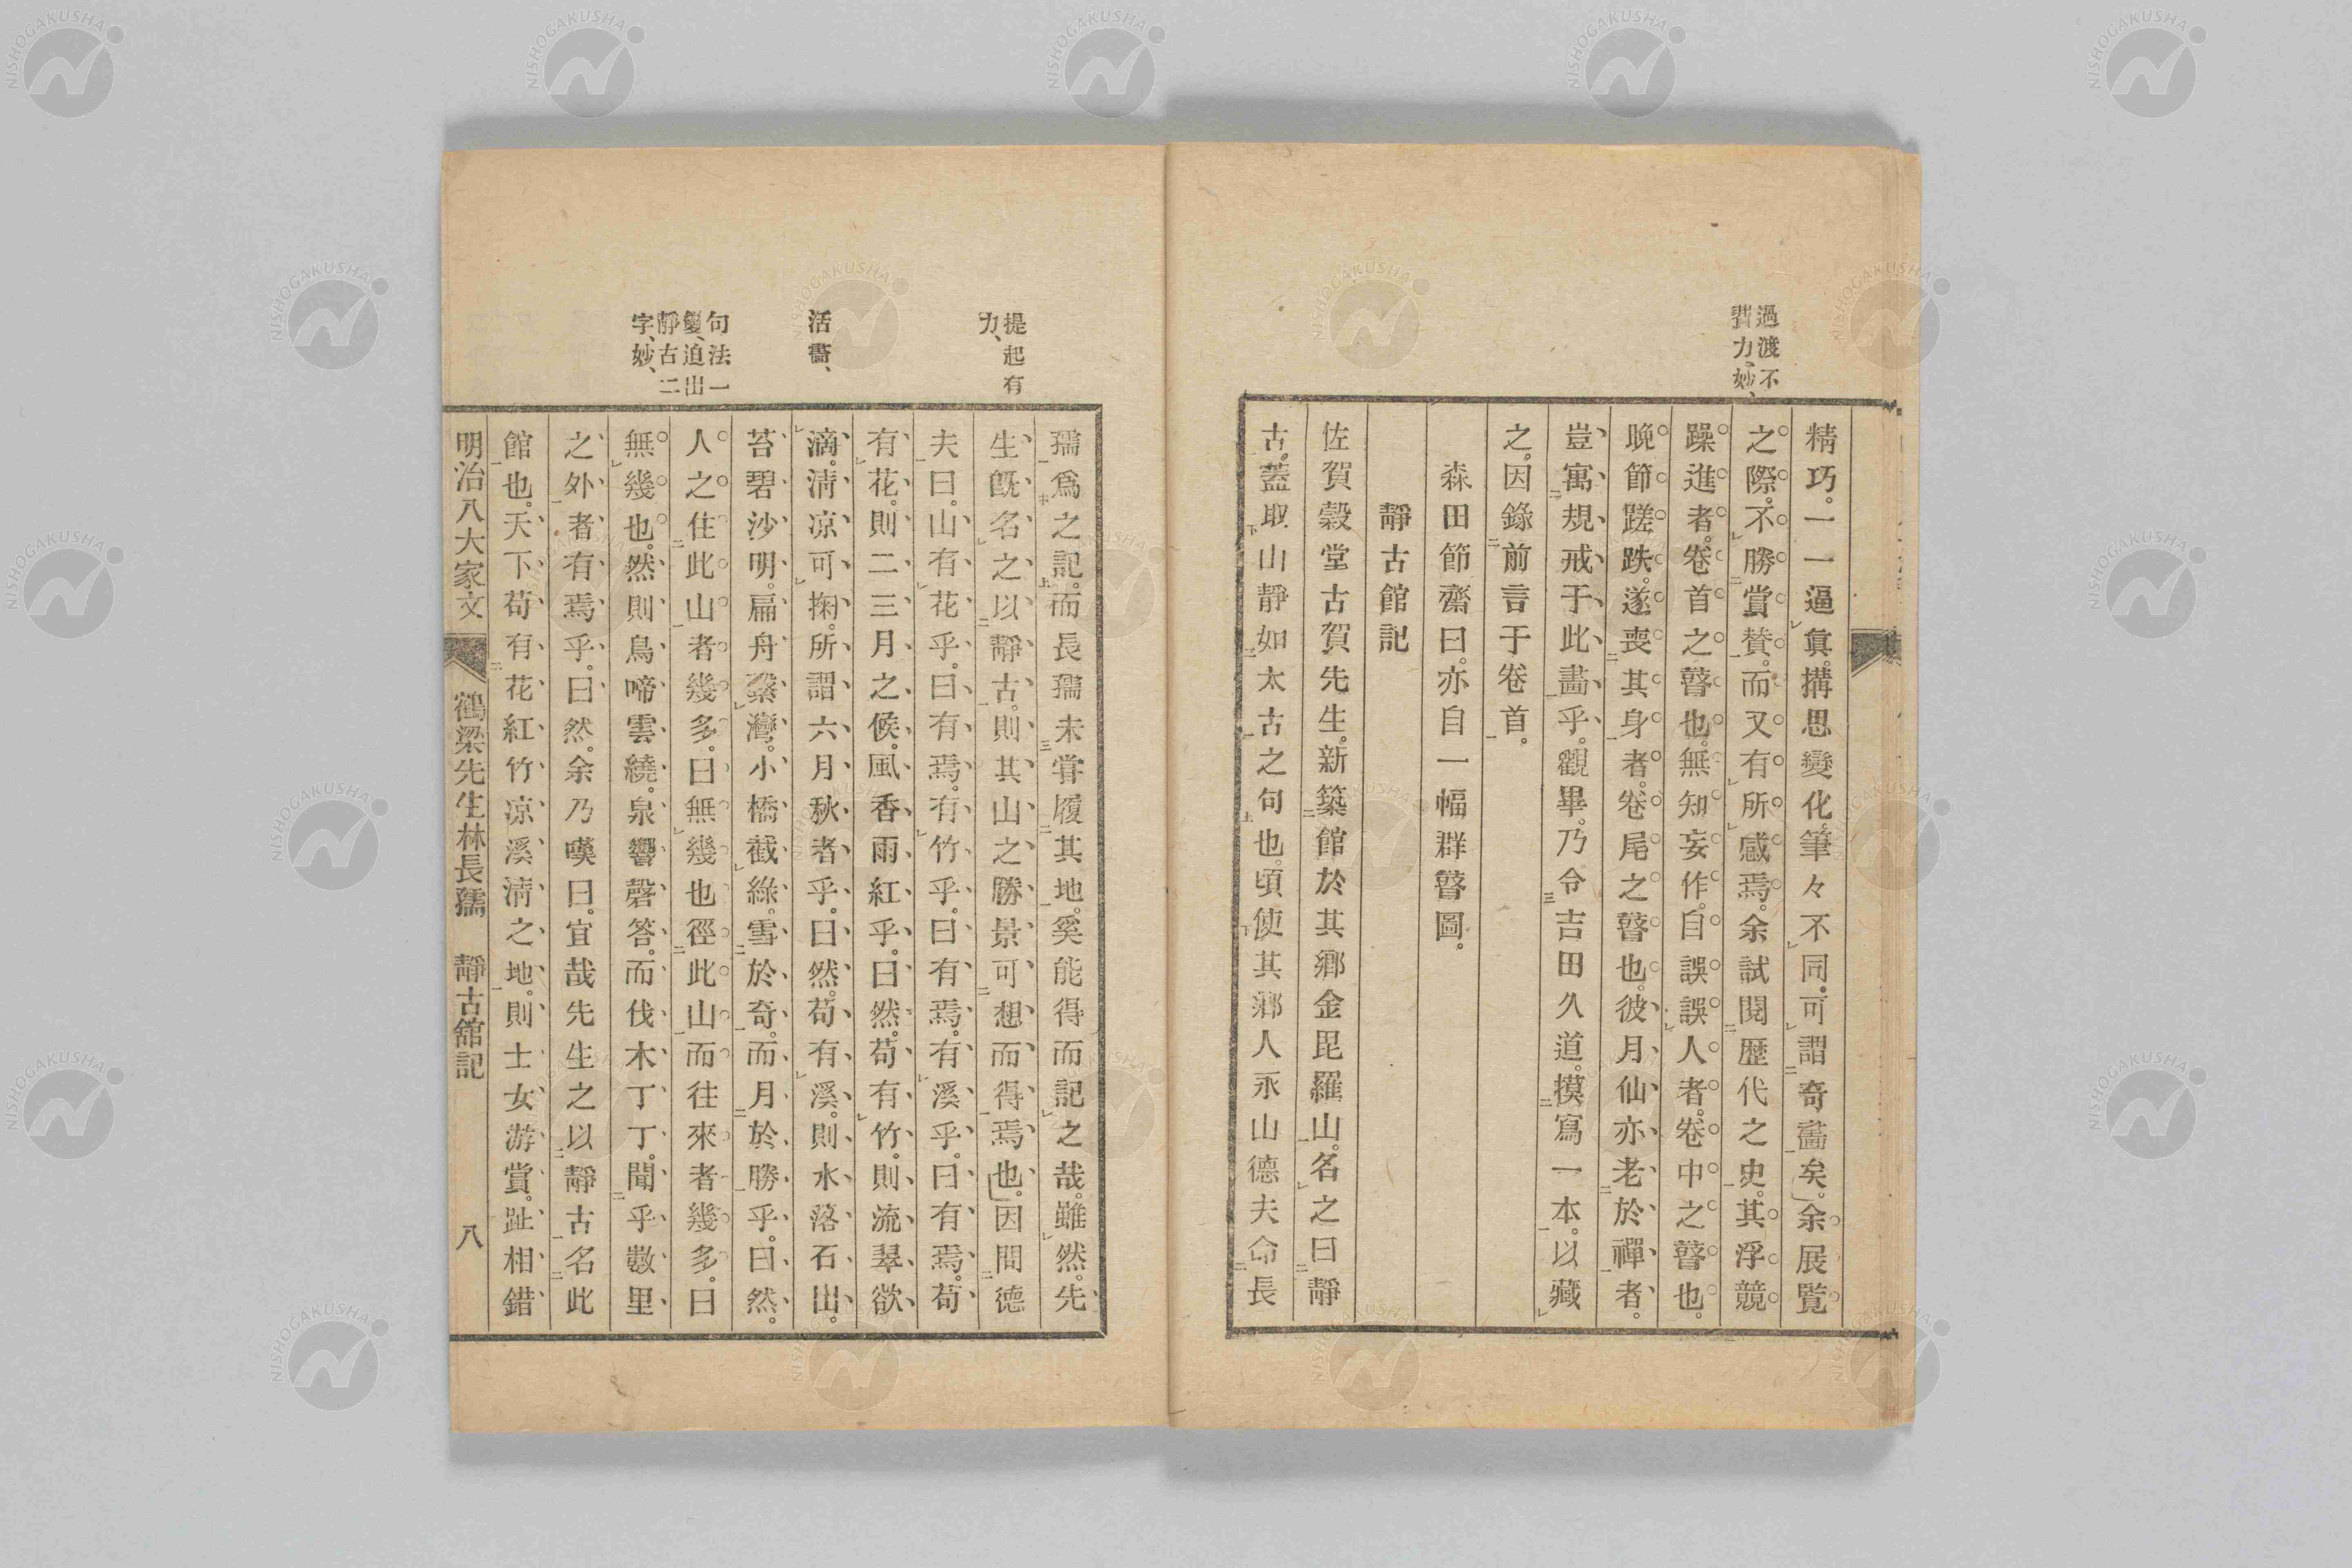 過渡不
費力、妙、
精巧。一一逼眞。搆思變化。筆々不同。可謂奇畵矣。余展覧
之際。不勝賞贊。而又有所感焉。余試閱歴代之史。其浮競
躁進者。卷首之瞽也。無知妄作。自誤誤人者。卷中之瞽也。
晚節蹉跌。遂喪其身者。卷尾之瞽也。彼月仙亦老於禪者。
豈寓規戒于此畵乎。觀畢。乃令吉田久道。摸寫一本。以藏
之。因錄前言于卷首。
森田節齋曰。亦自一幅群瞽圖。
靜古館記
佐賀穀堂古賀先生。新築館於其鄉金毘羅山。名之曰靜
古。蓋取山靜如太古之句也。頃使其鄉人永山德夫命長
提起有
力、
活畵、
句法一
變、迫出
靜古二
字、妙、
孺爲之記。而長孺未甞履其地。奚能得而記之哉。雖然。先
生旣名之以靜古。則其山之勝景可想而得焉也。因問德
夫曰。山有花乎。曰有焉。有竹乎。曰有焉。有溪乎。曰有焉。苟
有花。則二三月之候。風香雨紅乎。曰然。苟有竹。則流翠欲
滴。淸凉可掬。所謂六月秋者乎。曰然。苟有溪。則水落石出。
苔碧沙明。扁舟繫灣。小橋截綠。雪於奇。而月於勝乎。曰然。
人之住此山者幾多。曰無幾也。徑此山而往來者幾多。曰
無幾也。然則鳥啼雲繞。泉響磬答。而伐木丁丁。聞乎數里
之外者有焉乎。曰然。余乃嘆曰。宜哉先生之以靜古名此
館也。天下苟有花紅竹凉溪淸之地。則士女游賞。趾相錯
明治八大家文 鶴梁先生林長孺 靜古館記 八
NISHOGAKUSHA